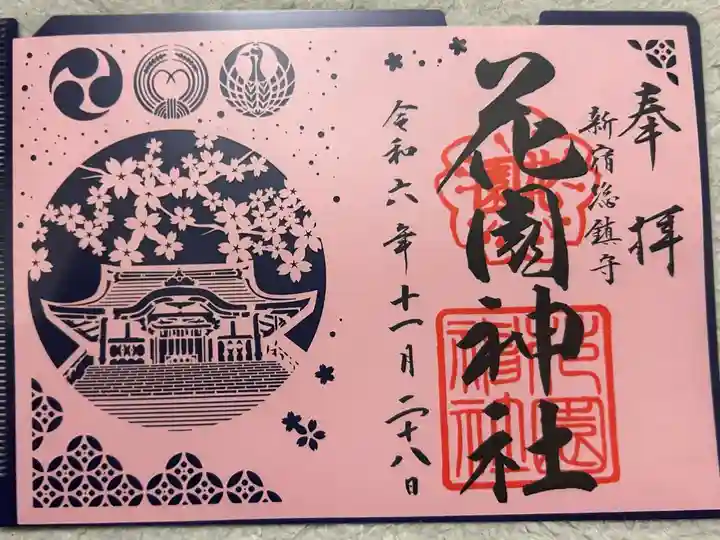 奉拝
新宿総鎮守
花園神社
令和六年十一月二十八日
花園神社